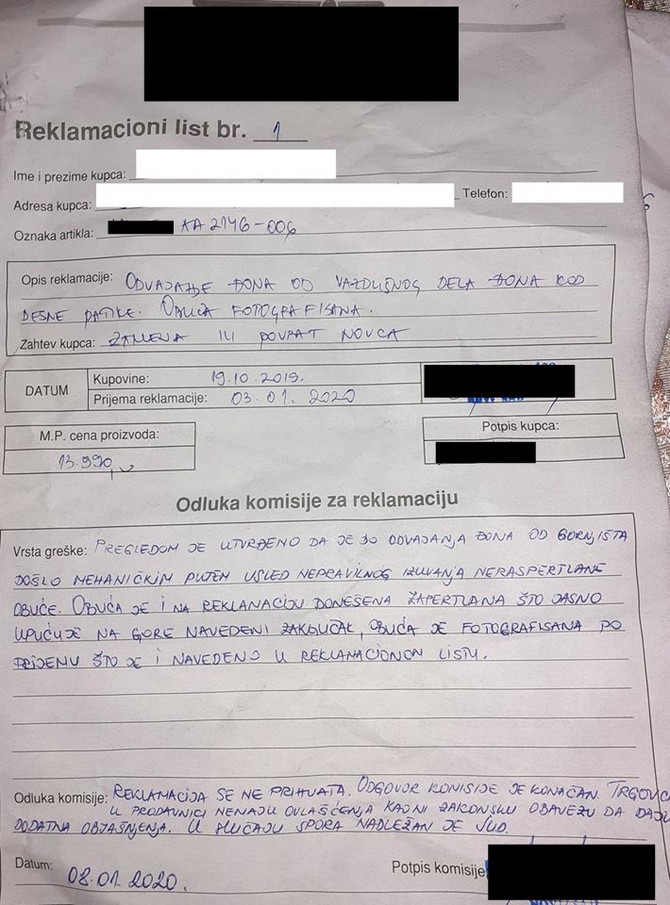 Reklamacioni list br. 1
Ime i prezime kupca:
Adresa kupca: Telefon:
Oznaka artikla: AA 2146-006
Opis reklamacije: ODVAJANJE ĐONA OD VAZDUŠNOG DELA ĐONA KOD
DESNE PATIKE. OBUĆA FOTOGRAFISANA.
Zahtev kupca: ZAMENA ILI POVRAT NOVCA
DATUM
Kupovine: 19.10.2019.
Prijema reklamacije: 03.01.2020
M.P. cena proizvoda:
13.990
Potpis kupca:
Odluka komisije za reklamaciju
Vrsta greške: PREGLEDOM JE UTVRĐENO DA JE DO ODVAJANJA ĐONA OD GORNJIŠTA
DOŠLO MEHANIČKIM PUTEM USLED NEPRAVILNOG IZUVANJA NERASPERTLANE
OBUĆE. OBUĆA JE I NA REKLAMACIJU DONEŠENA ZAPERTLANA ŠTO JASNO
UPUĆUJE NA GORE NAVEDENI ZAKLJUČAK, OBUĆA JE FOTOGRAFISANA PO
PRIJEMU ŠTO JE I NAVEDENO U REKLAMACIONOM LISTU.
Odluka komisije: REKLAMACIJA SE NE PRIHVATA. ODGOVOR KOMISIJE JE KONAČAN. TRGOVC
U PRODAVNICI NEMAJU OVLAŠĆENJA KAO NI ZAKONSKU OBAVEZU DA DAJU
DODATNA OBJAŠNJENJA. U SLUČAJU SPORA NADLEŽAN JE SUD.
Datum: 08.01.2020.
Potpis komisije